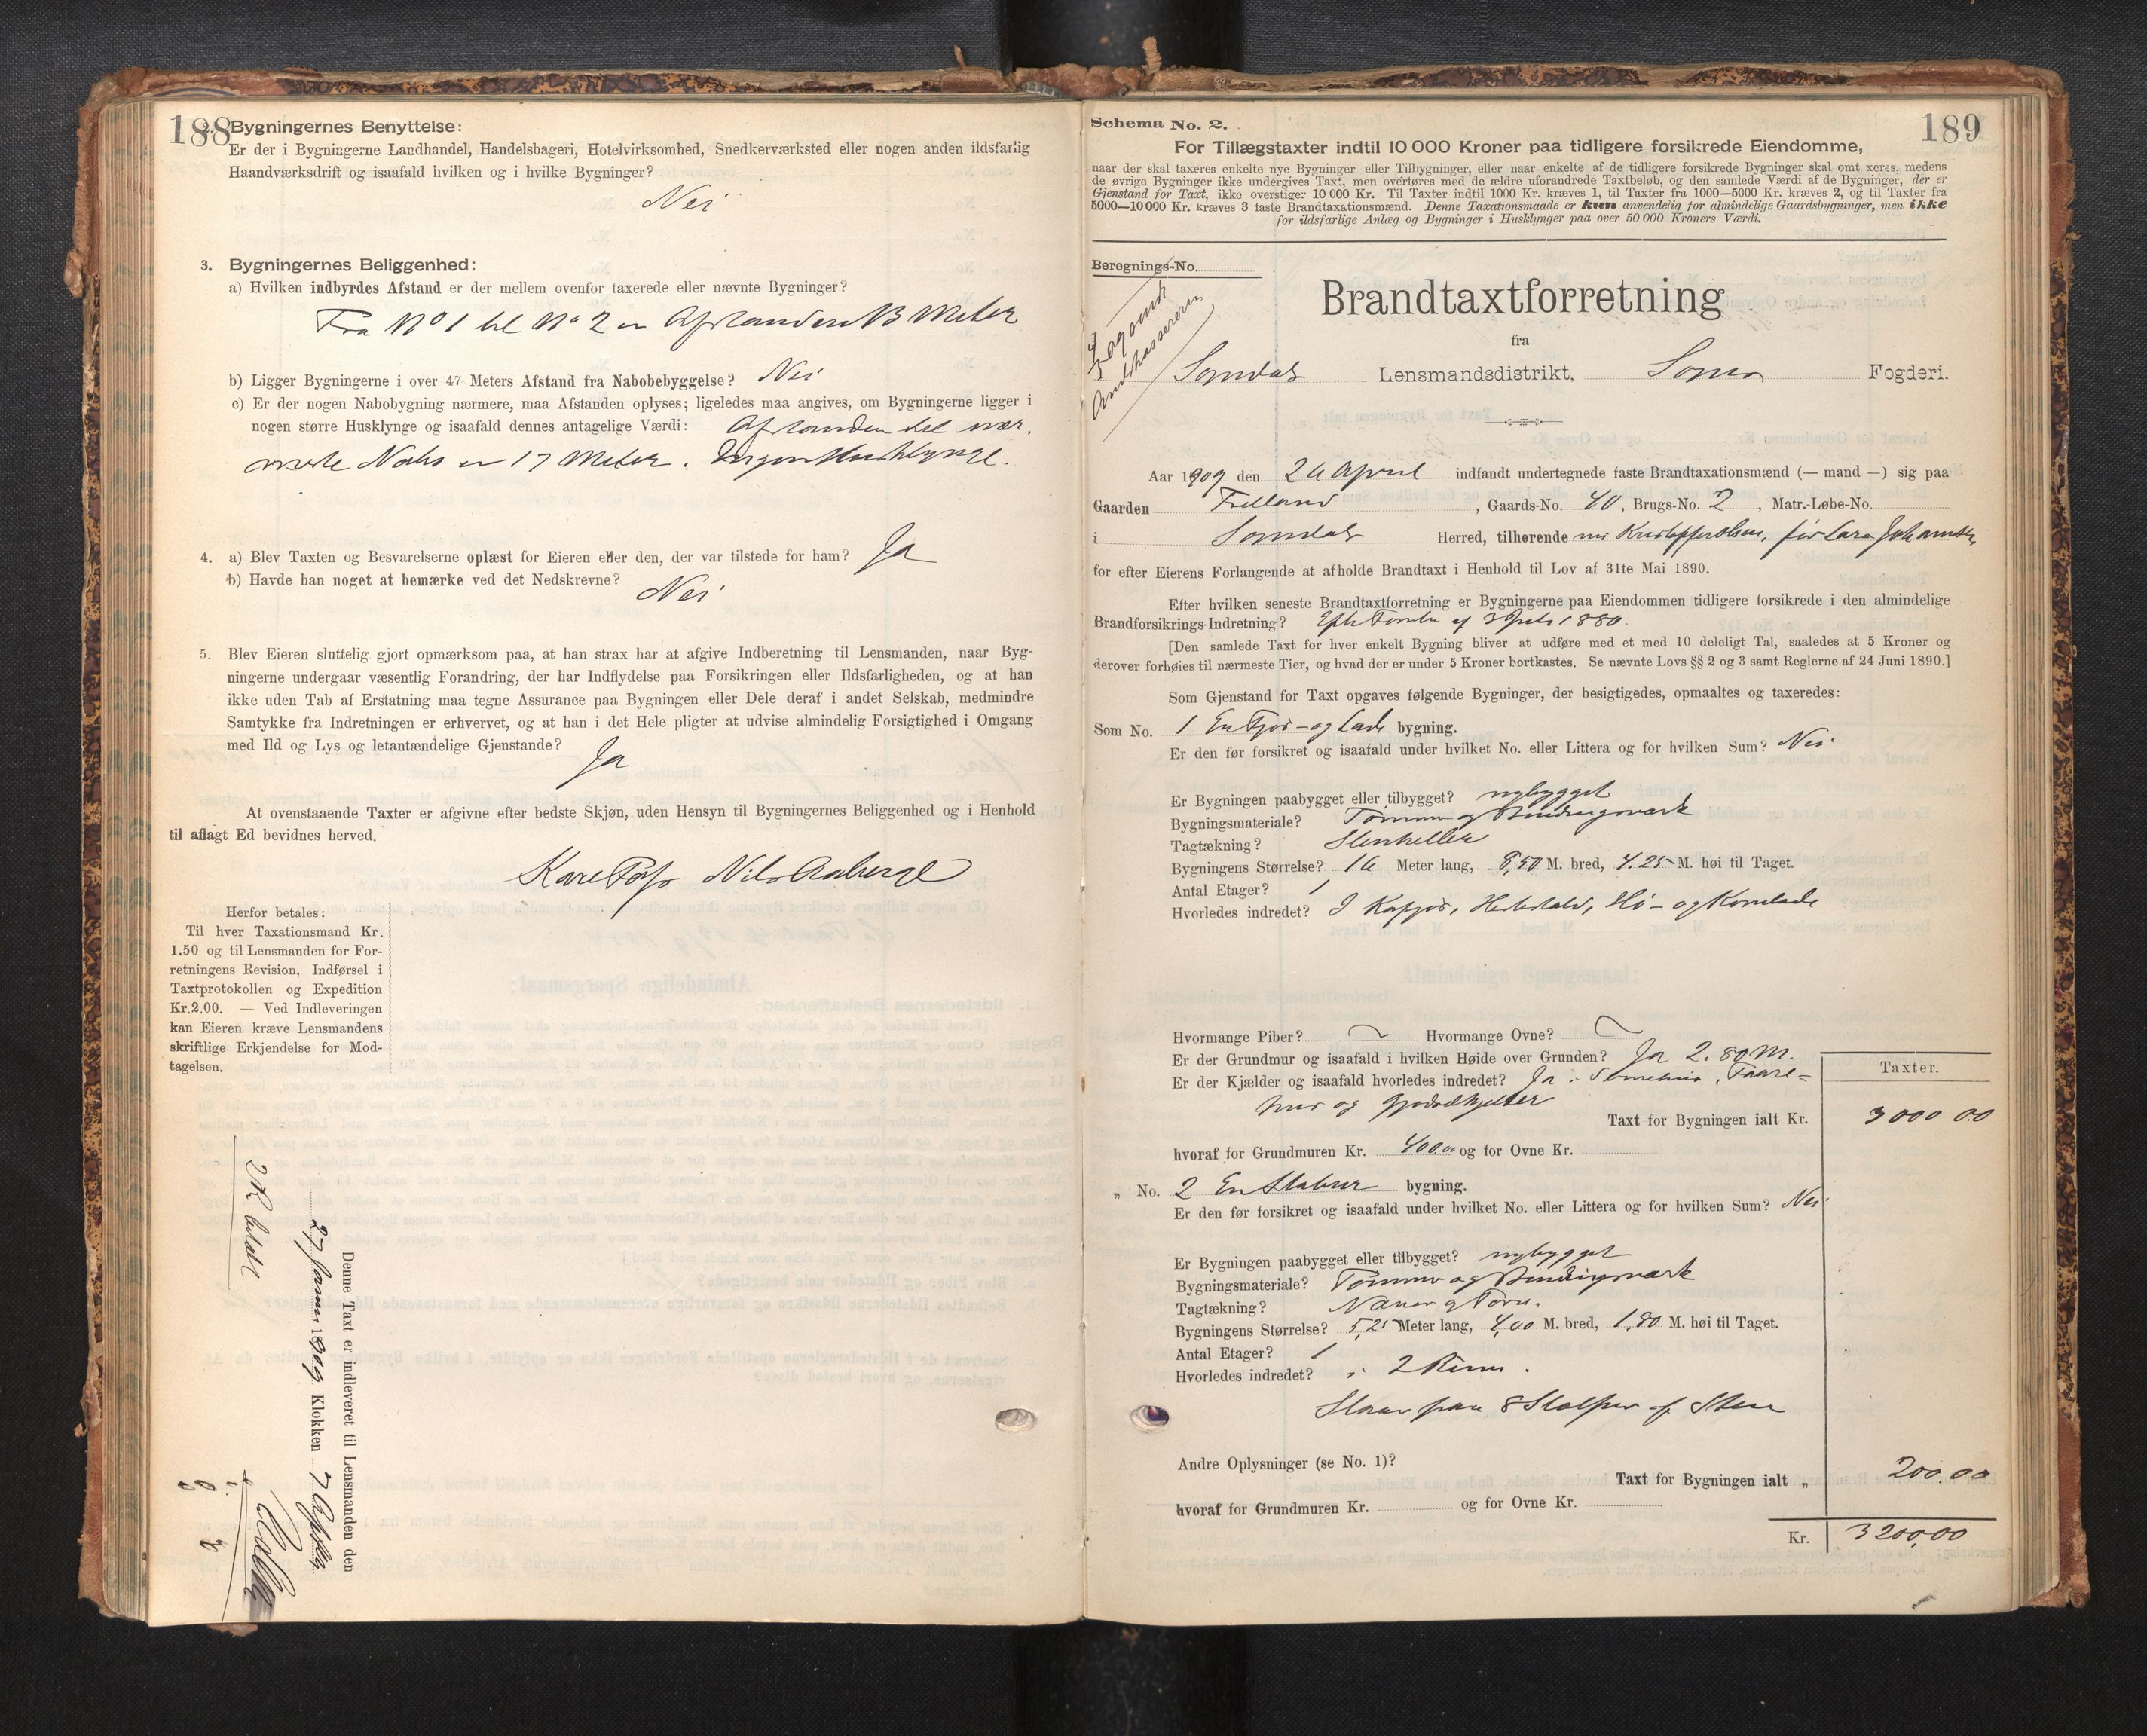 188
2. Bygningernes Benyttelse:
Er der i Bygningerne Landhandel, Handelsbageri, Hotelvirksomhed, Snedkerværksted eller nogen anden ildsfarlig
Haandværksdrift og isaafald hvilken og i hvilke Bygninger?
Nei
3. Bygningernes Beliggenhed:
a) Hvilken indbyrdes Afstand er der mellem ovenfor taxerede eller nævnte Bygninger?
Fra No 1 til No 2 er Afstanden 13 Meter
b) Ligger Bygningerne i over 47 Meters Afstand fra Nabobebyggelse? Nei
c) Er der nogen Nabobygning nærmere, maa Afstanden oplyses; ligeledes maa angives, om Bygningerne ligger i
nogen større Husklynge og isaafald dennes antagelige Værdi: Afstanden til nær-
meste Nabo er 17 Meter. Ingen Husklynge.
4. a) Blev Taxten og Besvarelserne oplæst for Eieren eller den, der var tilstede for ham? Ja
b) Havde han noget at bemærke ved det Nedskrevne?
Nei
5. Blev Eieren sluttelig gjort opmærksom paa, at han strax har at afgive Indberetning til Lensmanden, naar Byg-
ningerne undergaar væsentlig Forandring, der har Indflydelse paa Forsikringen eller Ildsfarligheden, og at han
ikke uden Tab af Erstatning maa tegne Assurance paa Bygningen eller Dele deraf i andet Selskab, medmindre
Samtykke fra Indretningen er erhvervet, og at han i det Hele pligter at udvise almindelig Forsigtighed i Omgang
med Ild og Lys og letantændelige Gjenstande?
Ja
At ovenstaaende Taxter er afgivne efter bedste Skjøn, uden Hensyn til Bygningernes Beliggenhed og i Henhold
til aflagt Ed bevidnes herved.
Nils Aaberge
Herfor betales:
Til hver Taxationsmand Kr.
1.50 og til Lensmanden for For-
retningens Revision, Indførsel i
Taxtprotokollen og Expedition
Kr.2.00. — Ved Indleveringen
kan Eieren kræve Lensmandens
skriftlige Erkjendelse for Mod-
tagelsen.
Denne Taxt er indleveret til Lensmanden den
27 1909 Klokken 7
2 Kr betalt
Schema No. 2.
189
For Tillægstaxter indtil 10 000 Kroner paa tidligere forsikrede Eiendomme,
naar der skal taxeres enkelte nye Bygninger eller Tilbygninger, eller naar enkelte af de tidligere forsikrede Bygninger skal omt xeres, medens
de øvrige Bygninger ikke undergives Taxt, men overføres med de ældre uforandrede Taxtbeløb, og den samlede Værdi af de Bygninger, der er
Gjenstand for Taxt, ikke overstiger 10 000 Kr. Til Taxter indtil 1000 Kr. kræves 1, til Taxter fra 1000—5000 Kr. kræves 2, og til Taxter fra
5000—10 000 Kr. kræves 3 faste Brandtaxationsmænd. Denne Taxationsmaade er kun anvendelig for almindelige Gaardsbygninger, men ikke
for ildsfarlige Anlæg og Bygninger i Husklynger paa over 50 000 Kroners Værdi.
Beregnings-No.
Brandtaxtforretning
fra
Sogndal Lensmandsdistrikt, Sogn Fogderi.
Aar 1909 den 26 April indfandt undertegnede faste Brandtaxationsmænd (— mand —) sig paa
Gaarden , Gaards-No. 40, Brugs-No. 2 , Matr.-Løbe-No.
i Sogndal Herred, tilhørende Lars Johannsen
for efter Eierens Forlangende at afholde Brandtaxt i Henhold til Lov af 31te Mai 1890.
Efter hvilken seneste Brandtaxtforretning er Bygningerne paa Eiendommen tidligere forsikrede i den almindelige
Brandforsikrings-Indretning? 1880.
[Den samlede Taxt for hver enkelt Bygning bliver at udføre med et med 10 deleligt Tal, saaledes at 5 Kroner og
derover forhøies til nærmeste Tier, og hvad der er under 5 Kroner bortkastes. Se nævnte Lovs §§ 2 og 3 samt Reglerne af 24 Juni 1890.]
Som Gjenstand for Taxt opgaves følgende Bygninger, der besigtigedes, opmaaltes og taxeredes:
Som No. 1 En Fjøs- og Lade bygning.
Er den før forsikret og isaafald under hvilket No. eller Littera og for hvilken Sum? Nei
Er Bygningen paabygget eller tilbygget? nybygget
Bygningsmateriale? Tømmer og Bindingsværk
Tagtækning? Stenheller
Bygningens Størrelse? 16 Meter lang, 8,50 M. bred, 4.25 M. høi til Taget.
Antal Etager? 1
Hvorledes indredet? I Kofjøs, Hestestald, Hø- og Kornlade
Hvormange Piber? Hvormange Ovne?
Er der Grundmur og isaafald i hvilken Høide over Grunden? Ja 2.80 M.
Er der Kjælder og isaafald hvorledes indredet? Ja i Faare-
hus og Gjødselkjelder
Taxter.
Taxt for Bygningen ialt Kr. 3000 00
hvoraf for Grundmuren Kr. 400 00 og for Ovne Kr.
„ No. 2 En Stabur bygning.
Er den før forsikret og isaafald under hvilket No. eller Littera og for hvilken Sum? Nei
Er Bygningen paabygget eller tilbygget? nybygget
Bygningsmateriale? Tømmer og Bindingsværk
Tagtækning? Næver og Torv.
Bygningens Størrelse? 5,25 Meter lang, 4,00 M. bred, 1,80 M. høi til Taget.
Antal Etager? 1
Hvorledes indredet? i 2 Rum.
Staar paa 8 Stolper af Sten
Andre Oplysninger (se No. 1)?
Taxt for Bygningen ialt „ 200.00
hvoraf for Grundmuren Kr. og for Ovne Kr.
Kr. 3200,00